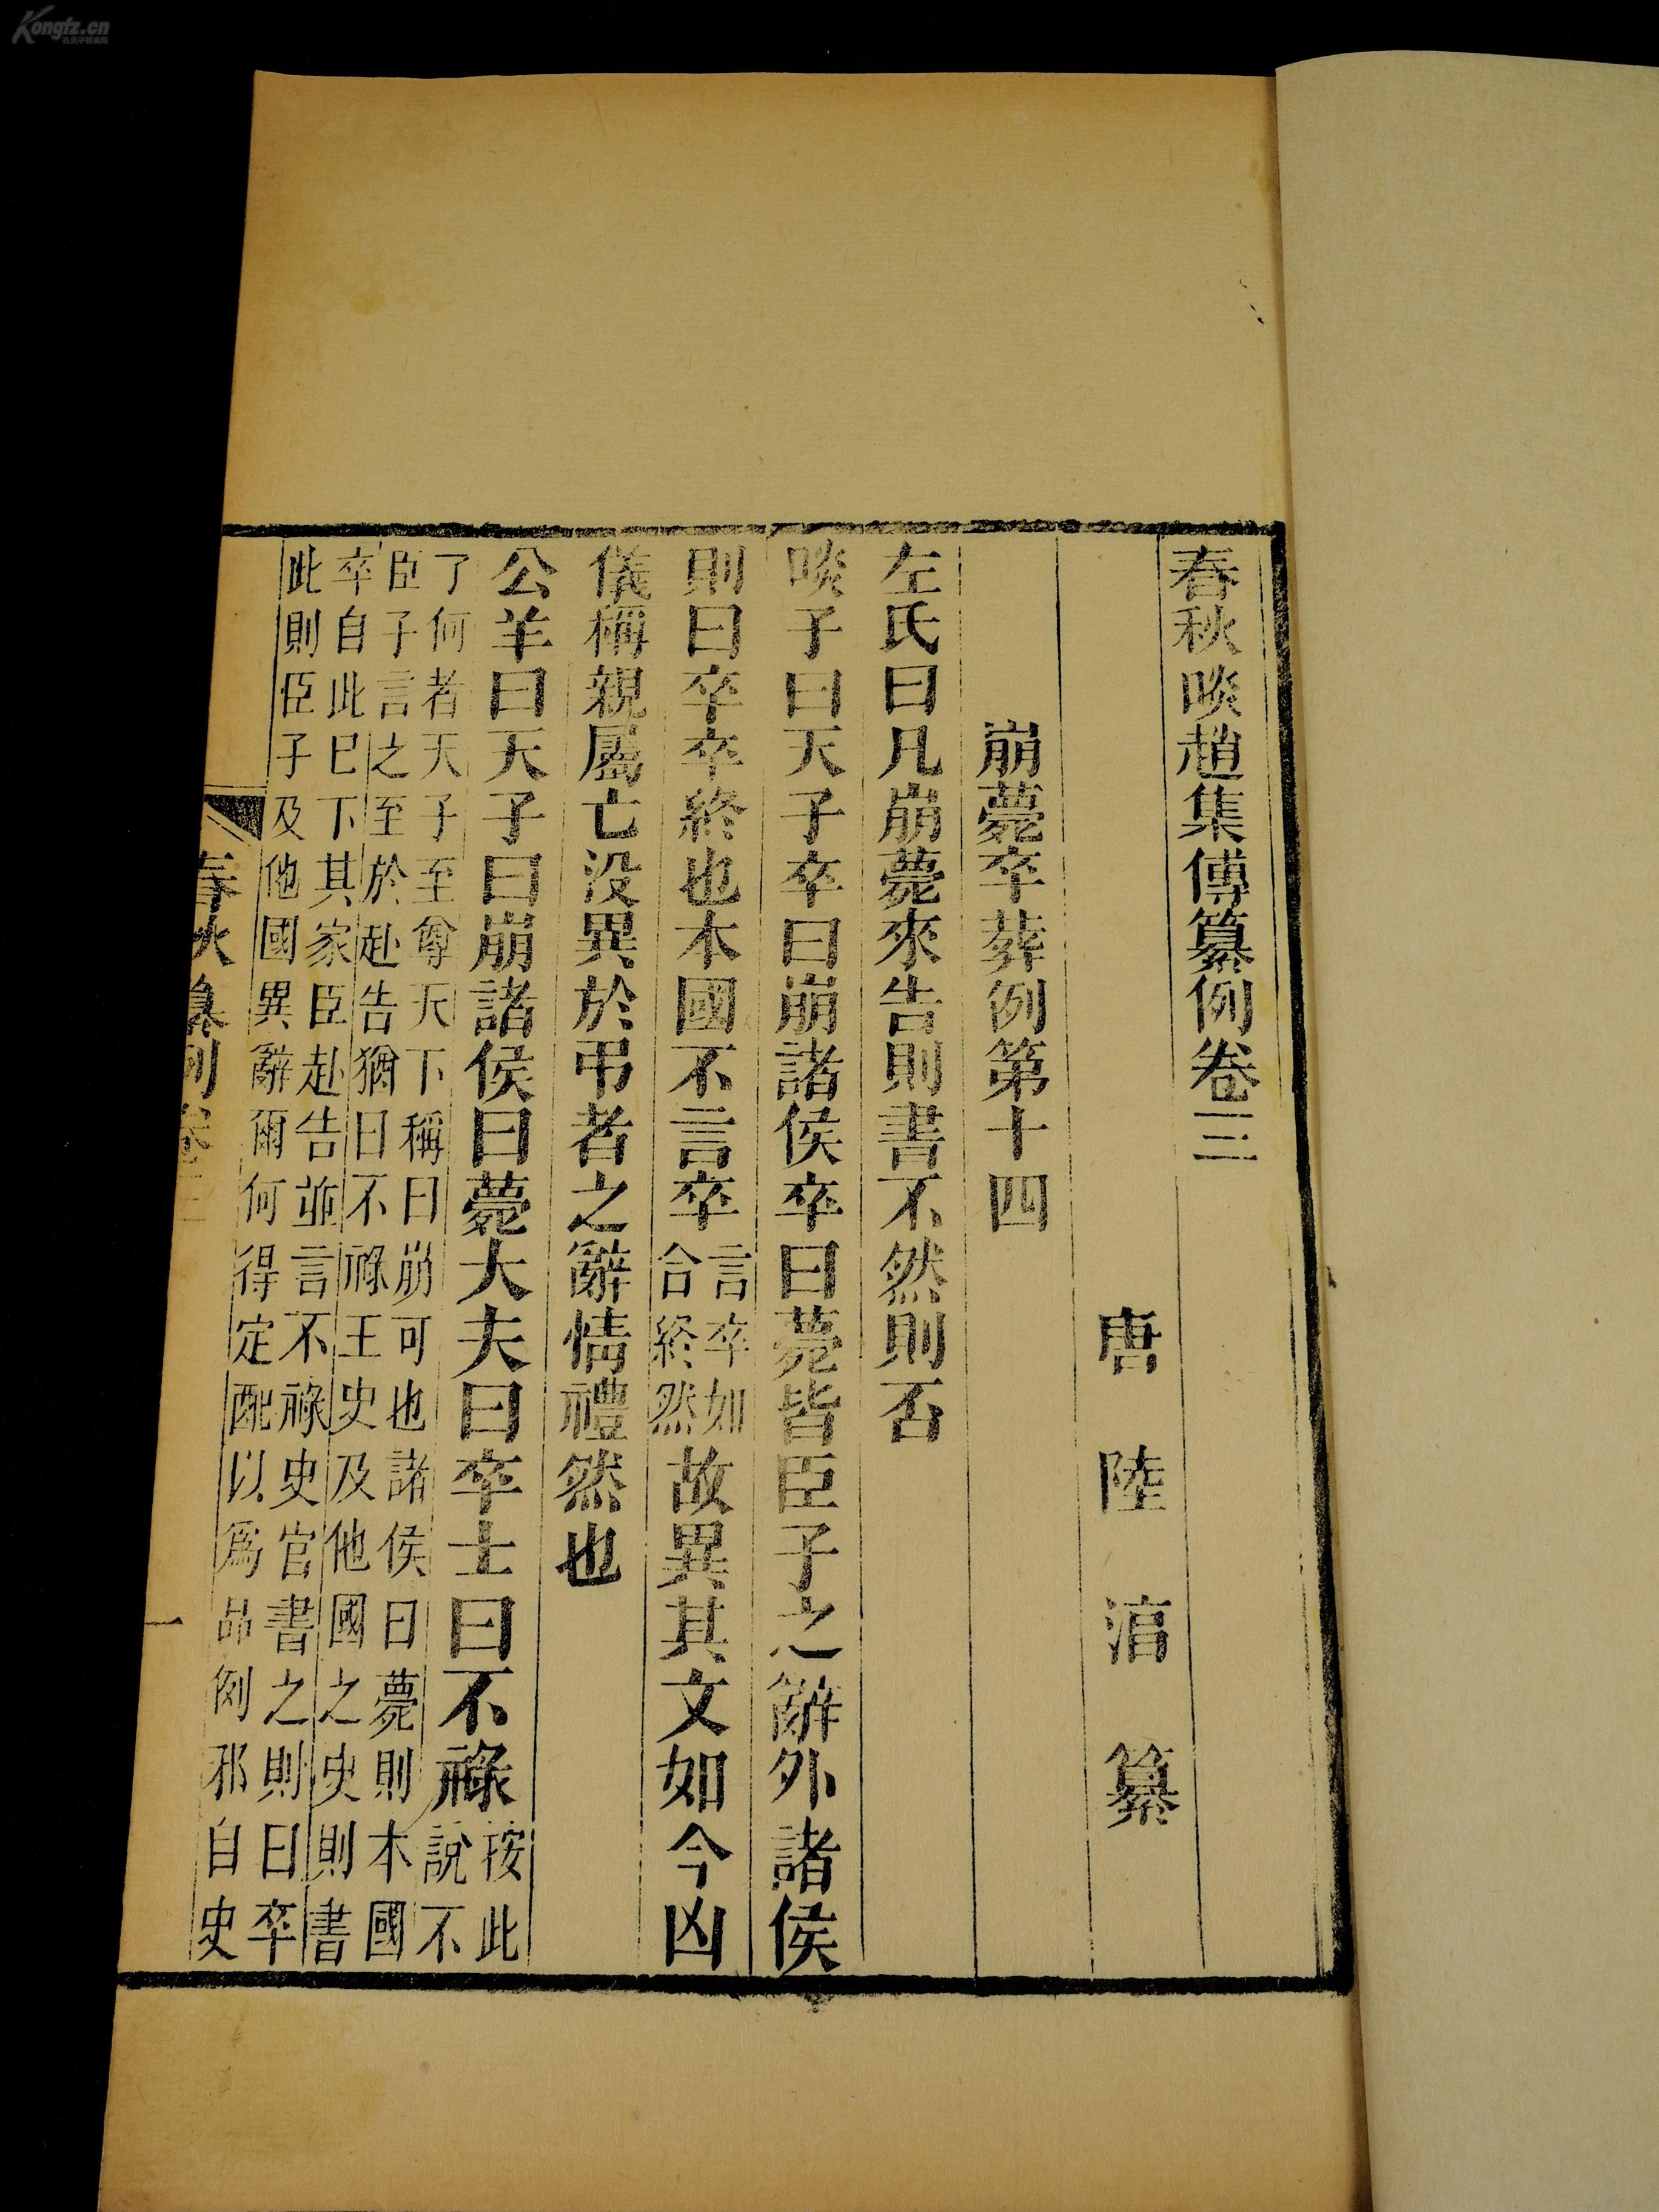 春秋啖趙集傳纂例卷三
唐 陸 湻 纂
崩薨卒葬例第十四
左氏曰凡崩薨來告則書不然則否
啖子曰天子卒曰崩諸侯卒曰薨皆臣子之辭外諸侯
則曰卒卒終也本國不言卒言卒如合終然故異其文如今凶
儀稱親屬亡没異於弔者之辭情禮然也
公羊曰天子曰崩諸侯曰薨大夫曰卒士曰不祿按此說不
了何者天子至尊天下稱曰崩可也諸侯曰薨則本國
臣子言之至於赴告猶曰不祿王史及他國之史則書
卒自此已下其家臣赴告並言不祿史官書之則曰卒
此則臣子及他國異辭爾何得定配以爲品例邪自史
春秋纂例卷三 一
Kongfz.cn